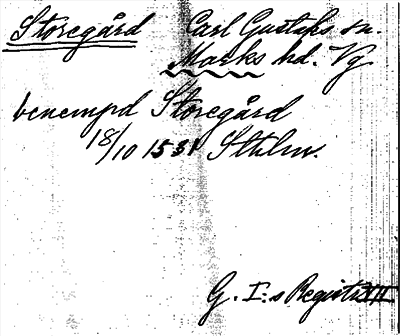 Storegård Carl Gustafs sn.
Marks hd. Vg
benempd Storegård
18/10 1551 Sthlm.
G. I:s Registr.